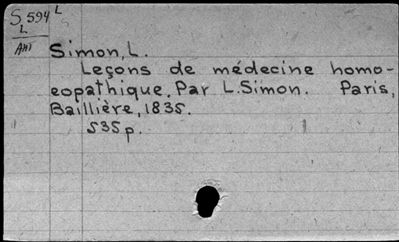 S 594 L
L
AHI
Simon, L.
Leçons de médecine homo-
eopathique. Par L. Simon. Paris,
Baillière, 1835.
535 p.